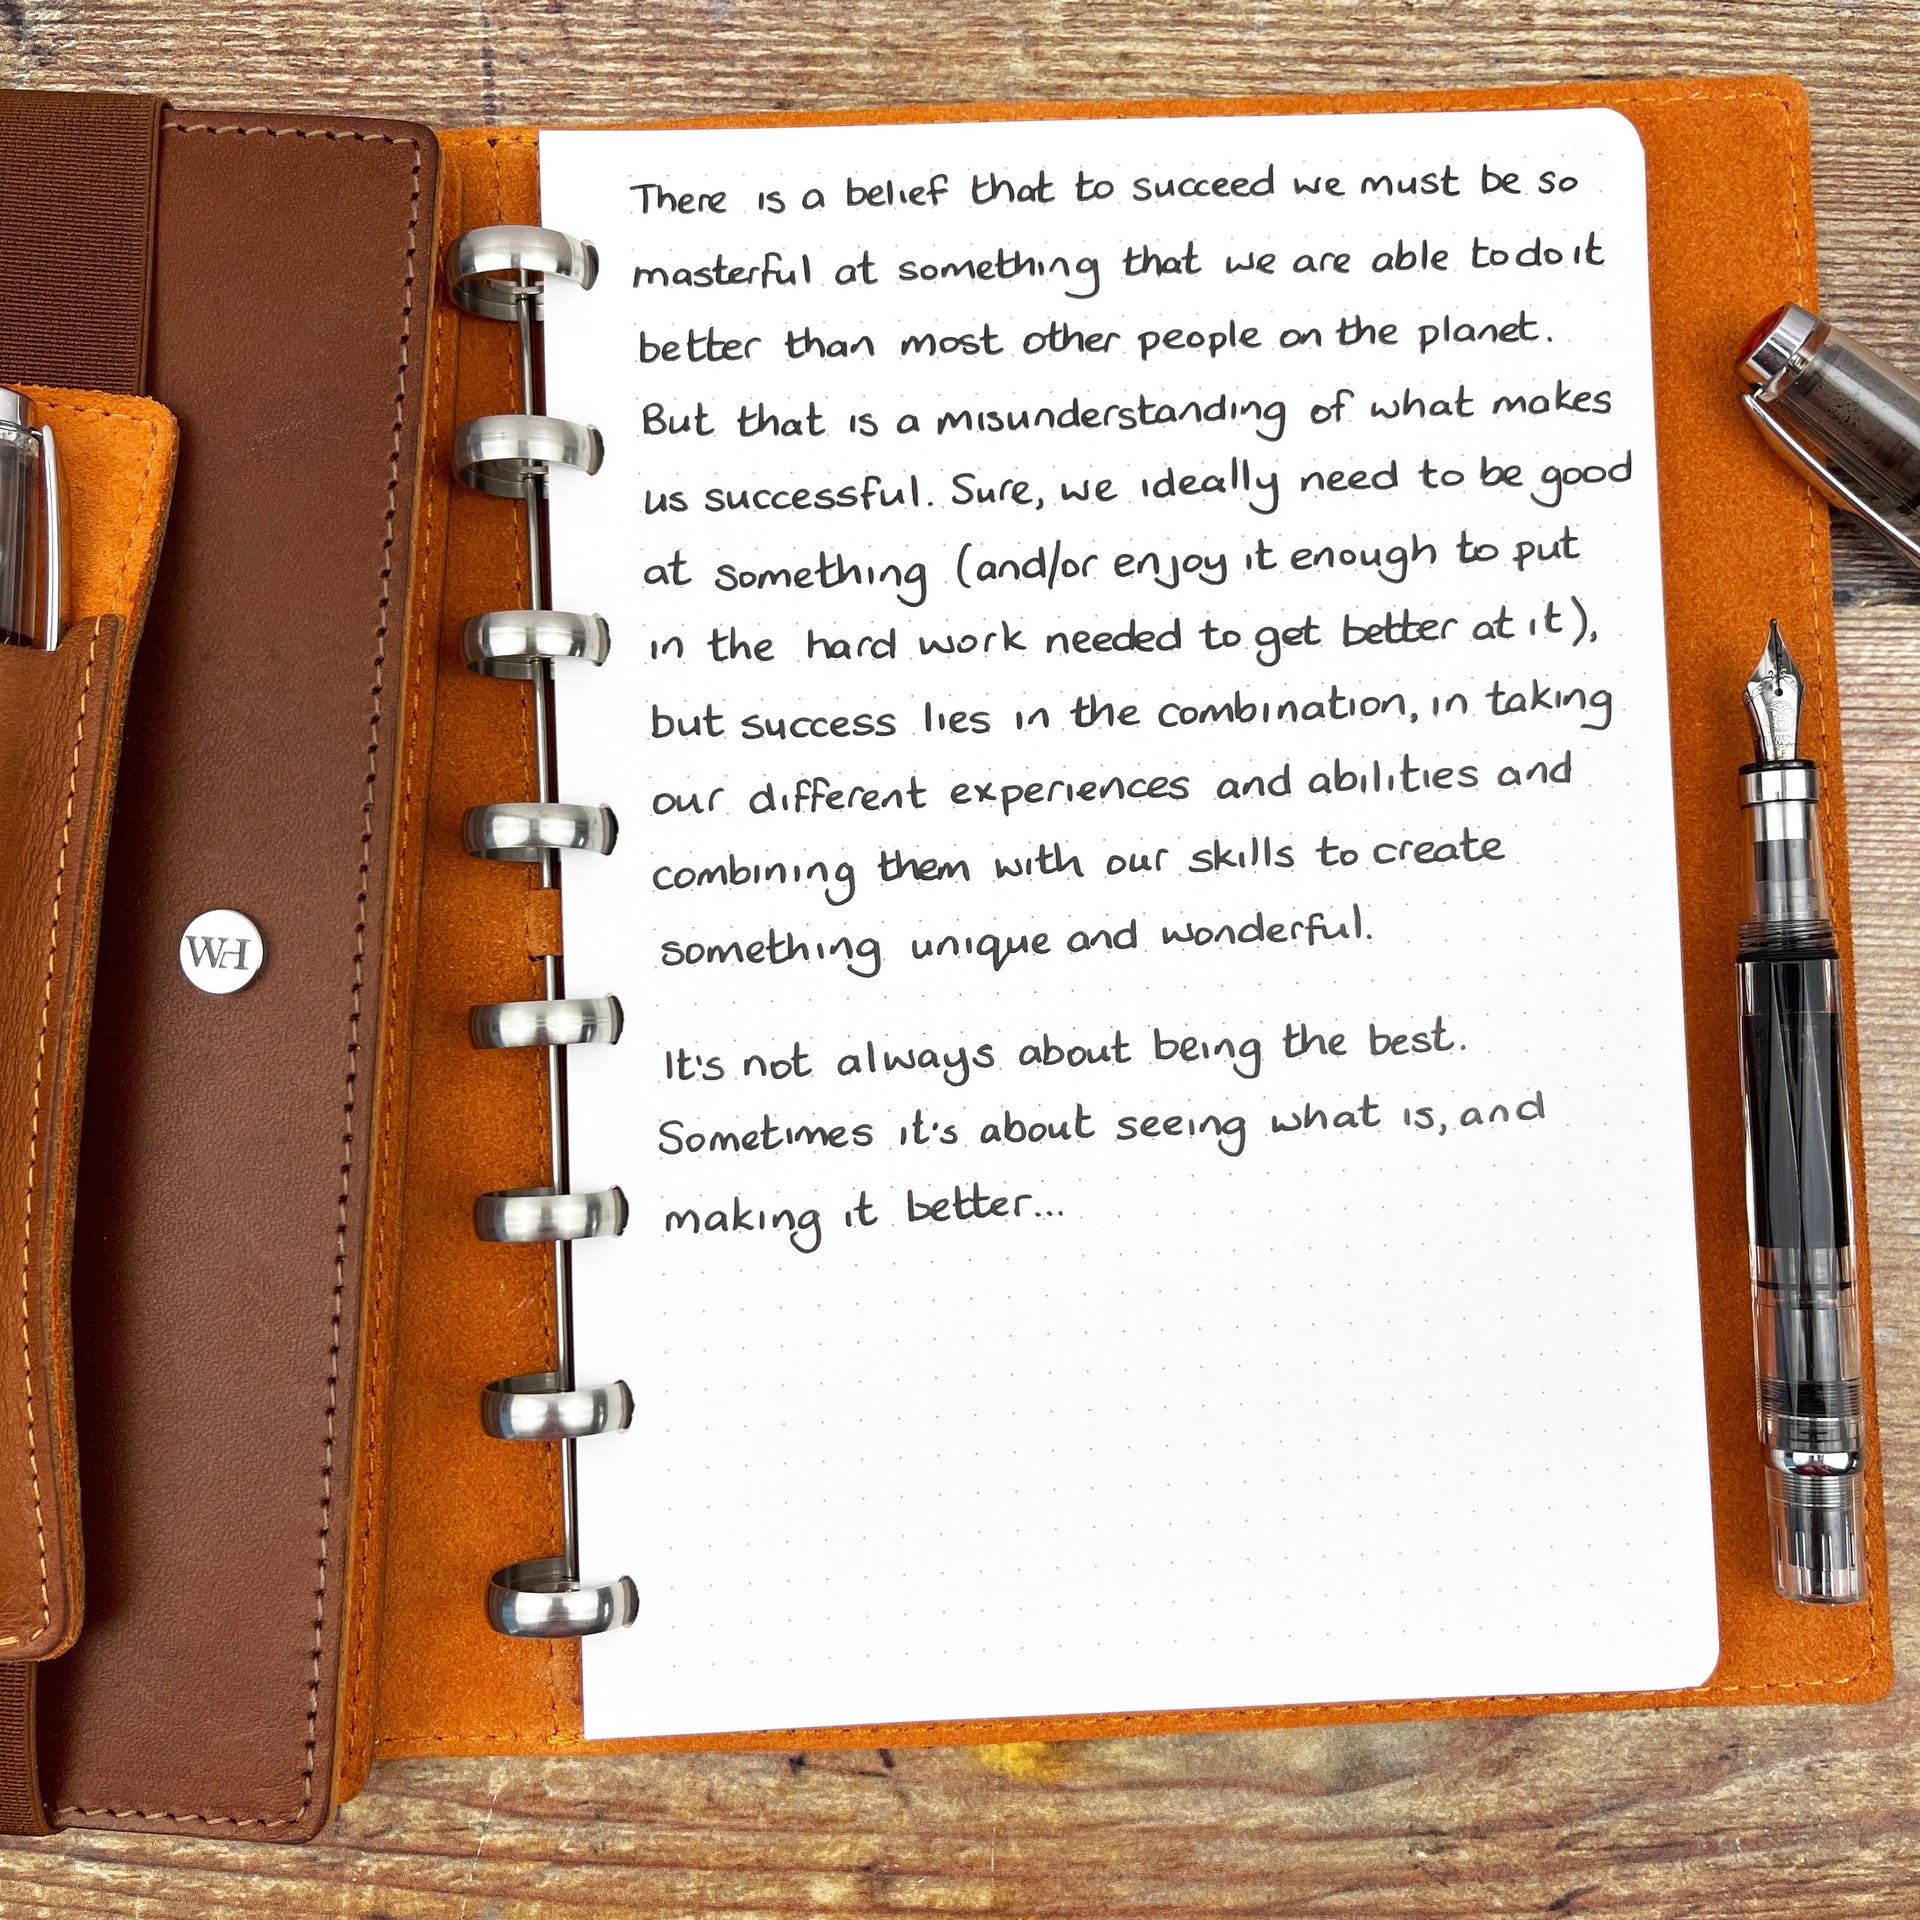 There is a belief that to succeed we must be so
masterful at something that we are able to do it
better than most other people on the planet.
But that is a misunderstanding of what makes
us successful. Sure, we ideally need to be good
at something (and/or enjoy it enough to put
in the hard work needed to get better at it),
but success lies in the combination, in taking
our different experiences and abilities and
combining them with our skills to create
something unique and wonderful.
It's not always about being the best.
Sometimes it's about seeing what is, and
making it better...
WH